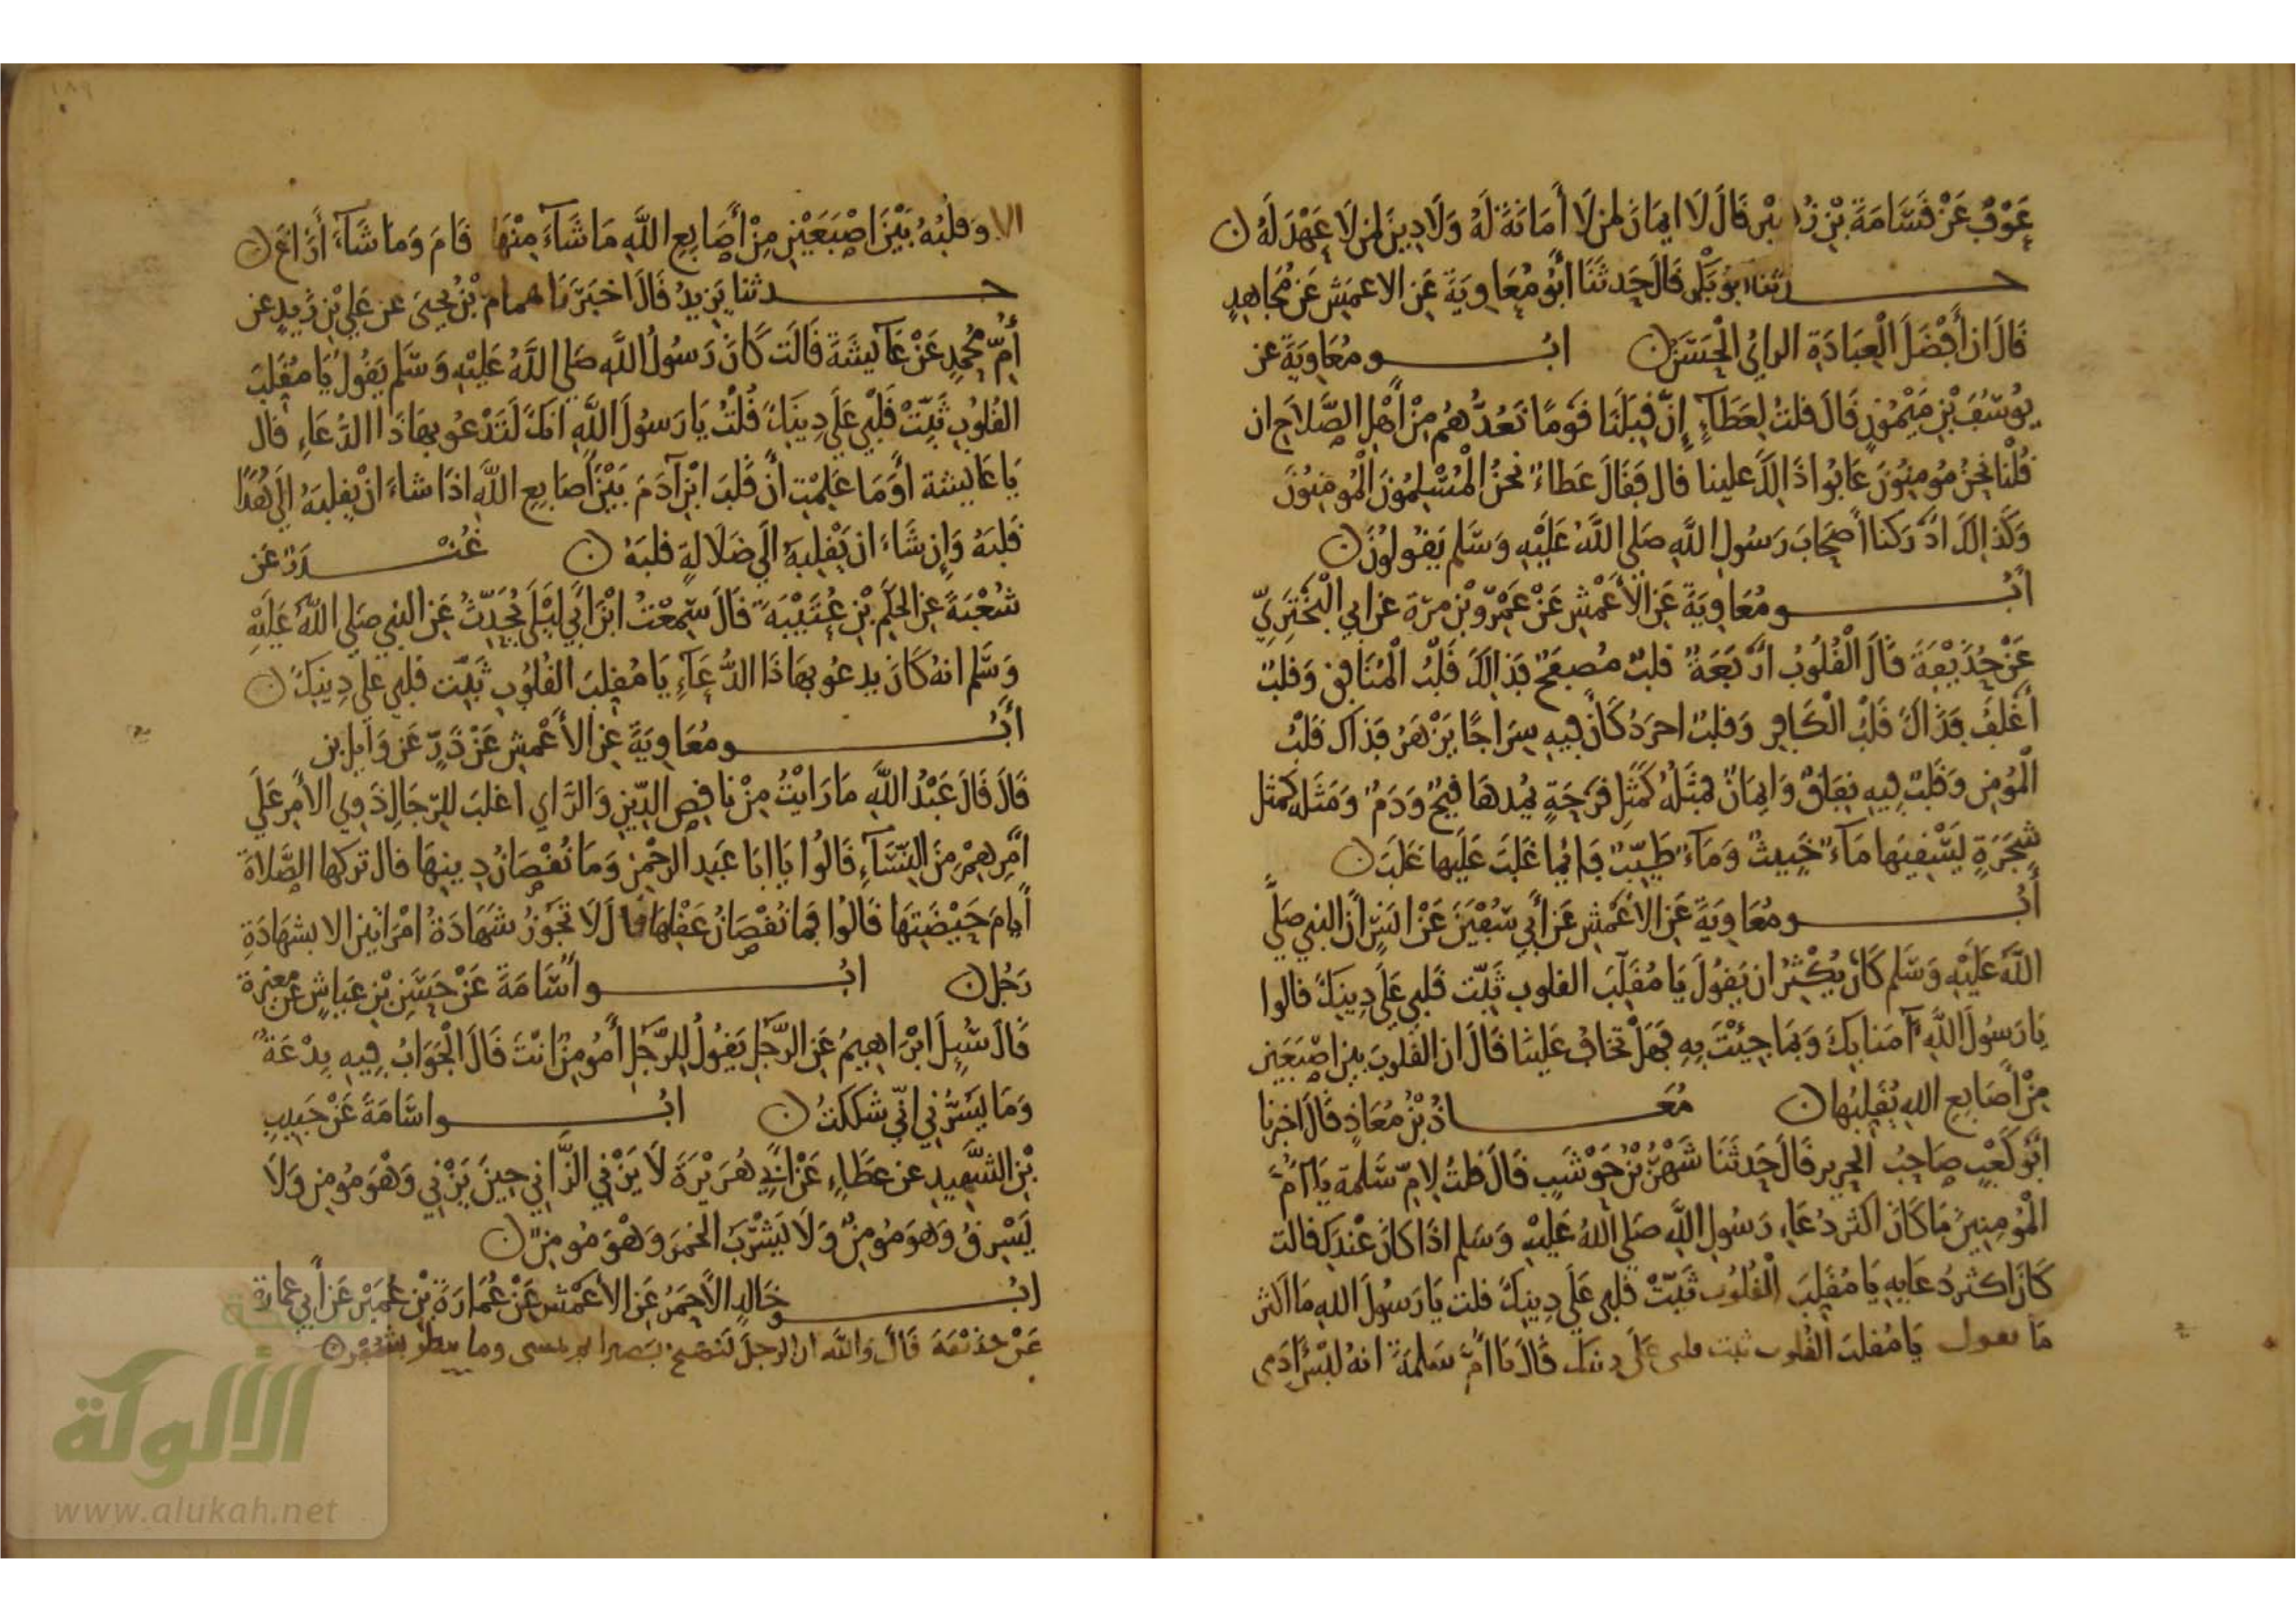 عَوْفٌ عَنْ قَسَامَةَ بْنِ زُهَيْرٍ قَالَ لَا ايمَانَ لمن لَا أَمَانَةَ لَهُ وَلَا دِينَ لمن لَا عَهْدَ لَهُ
حدثنا ابو بكر قَالَ حَدثَنَا أَبُو مُعَاوِيَةَ عَنِ الاعمَشِ عَن مُجَاهِدٍ
قَالَ ان أَفْضَلَ الْعِبَادَةِ الرايُ الْحَسَنُ ابُو مُعَاوِيَةَ عن
يُوسُفَ بْنِ مَيْمُونٍ قَالَ قلتُ لِعَطَآءٍ إِنَّ قِبَلَنَا قَومًا نَعُدُّهُم مِنْ أَهْلِ الصَّلَاحِ ان
قُلْنَا نحنُ مُومِنُونَ عَابُوا ذَالِكَ علينا قال فَقَالَ عَطاءٌ نحنُ الْمُسْلِمُونَ الْمُومِنُونَ
وَكَذَالِكَ ادْرَكنا أَصْحَابَ رَسُولِ اللَّهِ صَلى اللَّهُ عَلَيْهِ وَسَلم يَقُولُونَ
أَبُو مُعَاوِيَةَ عَنِ الأَعْمَشِ عَنْ عَمْرِو بْنِ مرّة عن ابي الْبَخْتَرِيِّ
عَنْ حُذَيْفَةَ قَالَ الْقُلُوبُ ارْبَعَةٌ قلبٌ مُصفَحٌ فَذَالِكَ قَلْبُ الْمُنَافِقِ وَقلبٌ
أَغْلَفُ فَذَاكَ قَلْبُ الْكَافِرِ وَقلبٌ اجرَدُ كَأَنَّ فِيهِ سِرَاجًا يَزْهَرُ فَذاكَ قَلْبُ
الْمُومِنِ وَقَلبٌ فِيهِ نِفَاقٌ وَايمَانٌ فمَثَلُهُ كَمَثَلِ قرْحَةٍ يمُدهَا قَيحٌ وَدَمٌ وَمَثَله كمثل
شَجَرَةٍ يَسْقِيهَا مَآءٌ خَبِيثٌ وَمَآءٌ طَيِّبٌ فَايُّمَا غَلَبَ عَلَيها غَلَبَ
أَبُو مُعَاوِيَةَ عَنِ الأَعْمَشِ عَن أَبِي سُفْيَنَ عَنْ انَسٍ أَنَّ النبي صَلَّى
اللَّهُ عَلَيْهِ وَسَلم كَانَ يُكْثِرُ ان يَقُولَ يَا مُقَلِّبَ القلوبِ ثَبِّت قَلبي عَلَى دِينِكَ قالوا
يَا رَسُولَ اللَّهِ آمَنا بِكَ وَبمَا جِيْتَ بِهِ فَهَلْ تَخَافُ عَلينَا قَالَ ان القُلوبَ بين اصْبَعَينِ
مِنْ أَصَابِعِ اللهِ يُقَلبُها مُعَاذُ بْنُ مُعَاذٍ قَالَ اخبرنا
ابُو كَعْبٍ صَاحِبُ الحرِيرِ قَالَ حَدثَنَا شَهْرُ بْنُ حَوْشَبٍ قَالَ قلتُ لامِّ سَلمةَ يَا امَّ
الْمُومِنِينَ مَا كَانَ اكثَر دُعَاءِ رَسُولِ اللَّهِ صَلى اللهُ عَلَيْهِ وَسَلم اذَا كَانَ عنْدَكِ قالت
كَانَ اكثَر دُعَايِهِ يَا مُقَلِّبَ الْقُلُوبِ ثَبِّتْ قلبي عَلَى دِينِكَ قلت يَا رَسُولَ اللهِ مَا اكثر
مَا تقول يَا مُقلبَ القُلوب ثبت قلبي عَلَى دينك قَالَ يَا امَّ سَلمَةَ انهُ ليْسَ ادَمي
الا وَقلبُهُ بَيْنَ اصْبَعَيْنِ مِنْ أَصَابِعِ اللَّهِ مَا شَآءَ مِنْهَا قَام وَمَا شَآءَ أَزَاغَ
حدثنا يَزِيدُ قَالَ اخبَرَنَا همام بْنُ يَحيىَ عن عَلِي بْنِ زَيدٍ عن
أُمِّ مُحمدٍ عَنْ عَآيِشَةَ قَالَت كَانَ رَسُولُ اللَّهِ صَلى اللَّهُ عَلَيْهِ وَسَلم يَقُولُ يَا مُقَلِّبَ
القُلُوبِ ثَبِّتْ قَلْبي عَلَى دِينِكَ قُلْتُ يَا رَسُولَ اللَّهِ انكَ لَتَدْعُو بهَاذَا الدُّعَاءِ قال
يَا عَايشة أَوَمَا عَلِمْتِ أَنَّ قَلبَ ابْنِ آدَمَ بَيْنَ أَصَابِعِ اللَّهِ اذَا شاءَ انْ يقلبَهُ الَى هُدًى
قَلبَهُ وَإِن شَاءَ ان يَقْلِبَهُ الَى ضَلَالَةٍ قلبَهُ غُنْدَرٌ عَن
شُعْبَةَ عن الحَكَمِ بْنِ عُتَيْبَةَ قَالَ سَمِعْتُ ابْنَ أَبِي لَيْلَى يُحَدِّثُ عَن النبي صَلى اللهُ عَلَيْهِ
وَسَلم انهُ كَانَ يدعُو بهَاذَا الدُّعَآءِ يَا مُقَلبَ القُلُوبِ ثَبِّت قلبي عَلى دِينِكَ
أَبُو مُعَاوِيَةَ عَنِ الأَعْمَشِ عَنْ ذَرٍّ عَن وَايِل بن
قَالَ قَالَ عَبْدُ اللَّهِ مَا رَايْتُ مِنْ نَاقِصِ الدِّينِ وَالرَّايِ اغلبَ للرِّجَالِ ذَوِي الأَمرِ عَلَى
امْرِهِمْ مِنَ النِّسَآءِ قَالُوا يَا ابَا عَبدِ الرحْمنِ وَمَا نُقْصَانُ دِينِهَا قال تركها الصَّلَاةَ
أَيامَ حَيْضَتِهَا قَالُوا فمَا نُقْصَانُ عَقْلِهَا قَالَ لَا تَجُوزُ شَهَادَةُ امْرَاتينِ الا بشهَادَةِ
رَجُلٍ ابُو أُسَامَةَ عَنْ حَسَنِ بْنِ عَياشٍ عَنْ مغيرة
قَالَ سُيِلَ ابْرَاهِيمُ عَنِ الرَّجُلِ يَقُولُ لِلرَّجُلِ أَمُومِنٌ انْتَ قَالَ الْجَوَابُ فِيهِ بِدْعَةٌ
وَمَا يَسُرُّنِي انِّي شككتُ ابُو اسَامَةَ عَنْ حَبِيبِ
بْنِ الشَّهِيدِ عن عَطَاءٍ عَنْ ابِي هُرَيْرَةَ لَا يَزْنِي الزَّانِي حِينَ يَزْنِي وَهْوَ مُومِنٌ وَلَا
يَسْرِقُ وَهوَ مُومِنٌ وَلَا يَشْرَبُ الخمرَ وَهْوَ مُومِنٌ
ابُو خَالِدٍ الأَحمَرُ عَنِ الأَعْمَشِ عَنْ عُمَارَةَ بْنِ عُمَيْرٍ عَن أَبِي عمارة
عَنْ حذَيْفَةَ قَالَ وَاللَّهِ ان الرجلَ لَيُصْبحُ بَصيرا ثم يمسى وما ينظر بشُفْرٍ
الألوكة
www.alukah.net